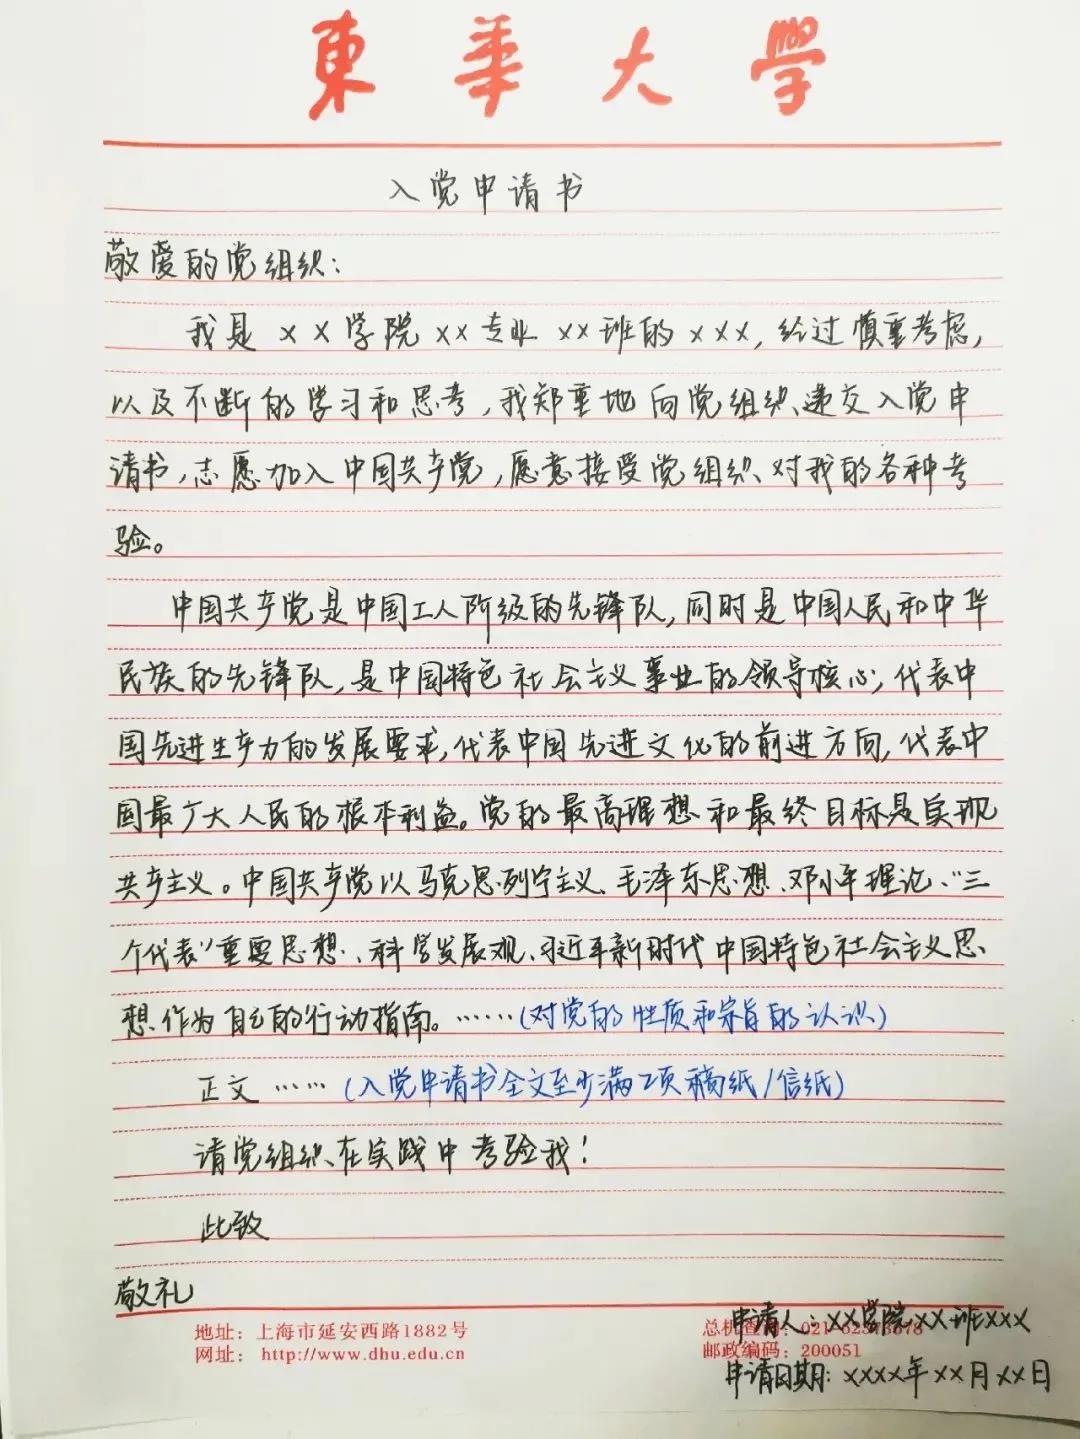 東華大學
入党申请书
敬爱的党组织：
我是××学院××专业××班的×××，经过慎重考虑，
以及不断的学习和思考，我郑重地向党组织递交入党申
请书，志愿加入中国共产党，愿意接受党组织对我的各种考
验。
中国共产党是中国工人阶级的先锋队，同时是中国人民和中华
民族的先锋队，是中国特色社会主义事业的领导核心，代表中
国先进生产力的发展要求，代表中国先进文化的前进方向，代表中
国最广大人民的根本利益。党的最高理想和最终目标是实现
共产主义。中国共产党以马克思列宁主义、毛泽东思想、邓小平理论、“三
个代表”重要思想、科学发展观、习近平新时代中国特色社会主义思
想作为自己的行动指南。……（对党的性质和宗旨的认识）
正文……（入党申请书全文至少满2页稿纸/信纸）
请党组织在实践中考验我！
此致
敬礼
申请人：××学院××班×××
申请日期：××××年××月××日
地址：上海市延安西路1882号
网址：http://www.dhu.edu.cn
邮政编码：200051